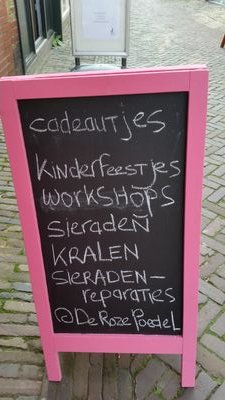 cadeautjes
Kinderfeestjes
WORKSHOPS
Sieraden
KRALEN
SIERADEN-
reparaties
@De Roze PoedeL